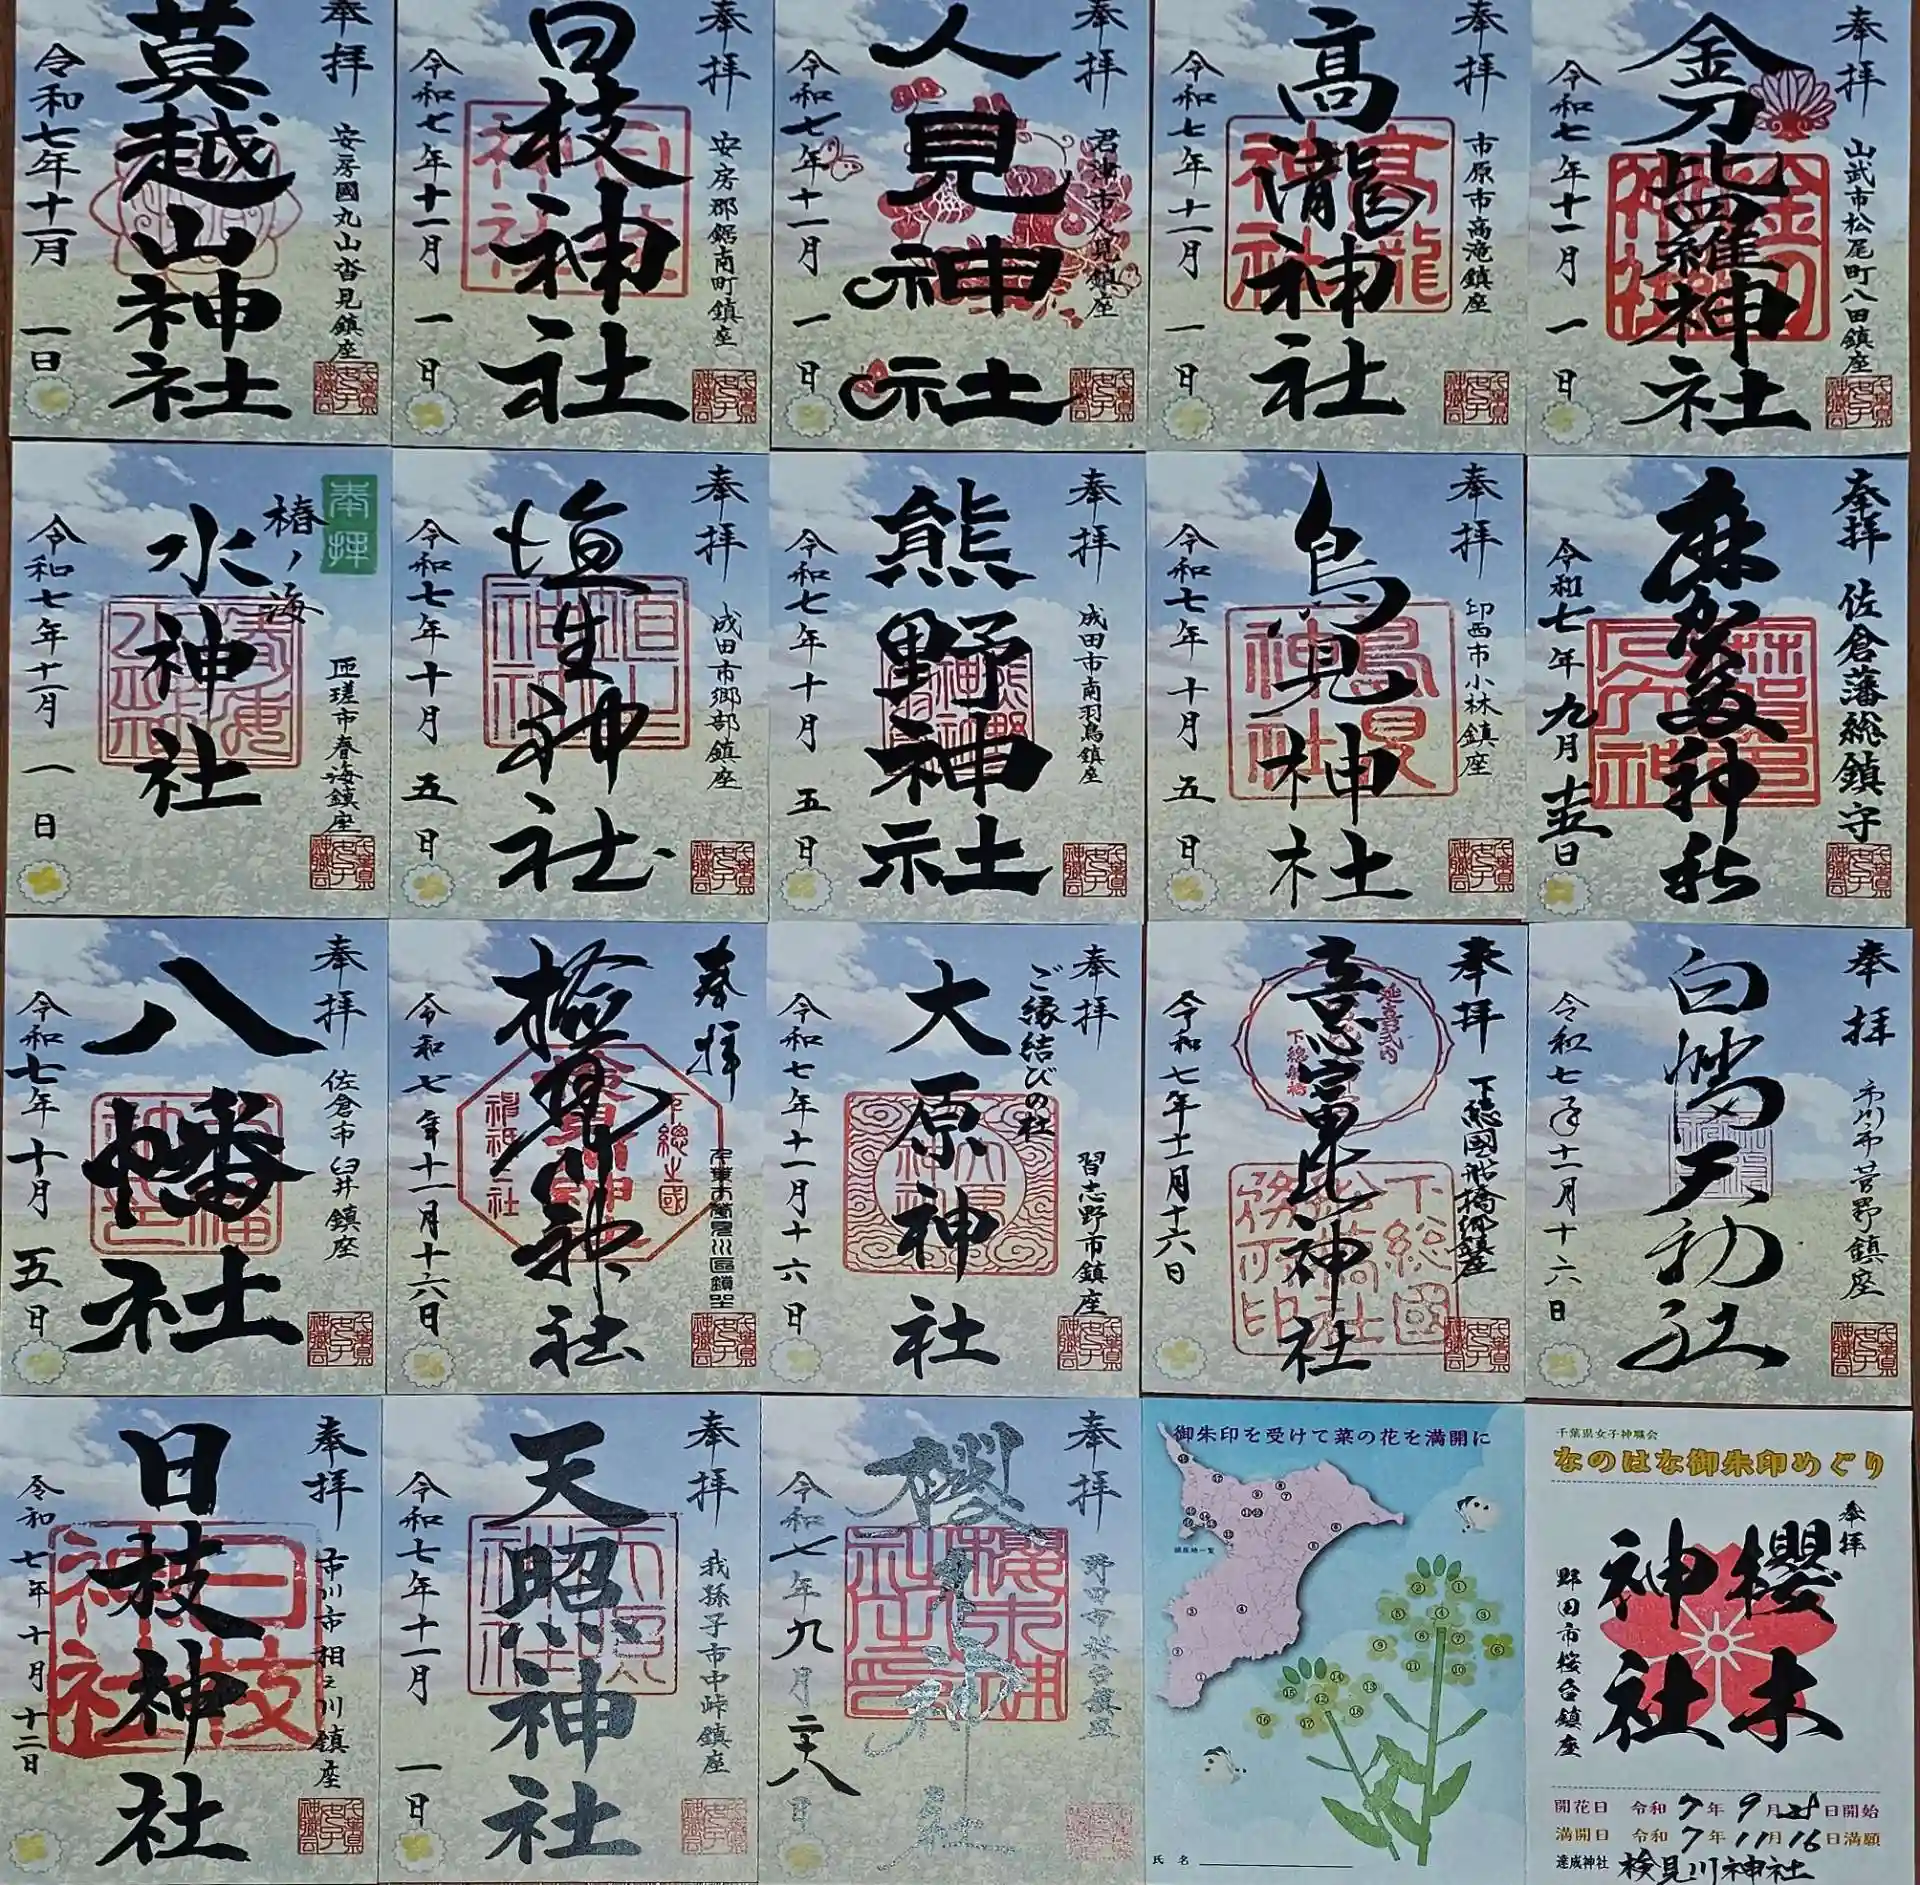 奉拝
安房國丸山沓見鎮座
莫越山神社
令和七年十一月 一日
奉拝
安房郡鋸南町鎮座
日枝神社
令和七年十一月 一日
奉拝
君津市人見鎮座
人見神社
令和七年十一月 一日
奉拝
市原市高滝鎮座
高瀧神社
令和七年十一月 一日
奉拝
山武市松尾町八田鎮座
金刀比羅神社
令和七年十一月 一日
奉拝
匝瑳市春海鎮座
椿ノ海
水神社
令和七年十一月 一日
奉拝
成田市郷部鎮座
埴生神社
令和七年十月 五日
奉拝
成田市南羽鳥鎮座
熊野神社
令和七年十月 五日
奉拝
印西市小林鎮座
鳥見神社
令和七年十月 五日
奉拝
佐倉藩総鎮守
麻賀多神社
奉拝
佐倉市臼井鎮座
八幡社
令和七年十月 五日
奉拝
検見川神社
令和七年十一月十六日
奉拝
ご縁結びの社
習志野市鎮座
大原神社
令和七年十一月十六日
奉拝
下総國船橋郷鎮座
意富比神社
令和七年十一月十六日
奉拝
市川市菅野鎮座
白幡天神社
令和七年十一月十六日
奉拝
市川市相之川鎮座
日枝神社
令和七年十月 十二日
奉拝
我孫子市中峠鎮座
天照神社
令和七年十一月 一日
奉拝
野田市桜台鎮座
櫻木神社
令和七年九月二十八日
御朱印を受けて菜の花を満開に
鎮座地一覧
氏名
千葉県女子神職会
なのはな御朱印めぐり
奉拝
櫻木
神社
野田市桜台鎮座
開花日 令和7年9月28日開始
満開日 令和7年11月16日満願
達成神社 検見川神社